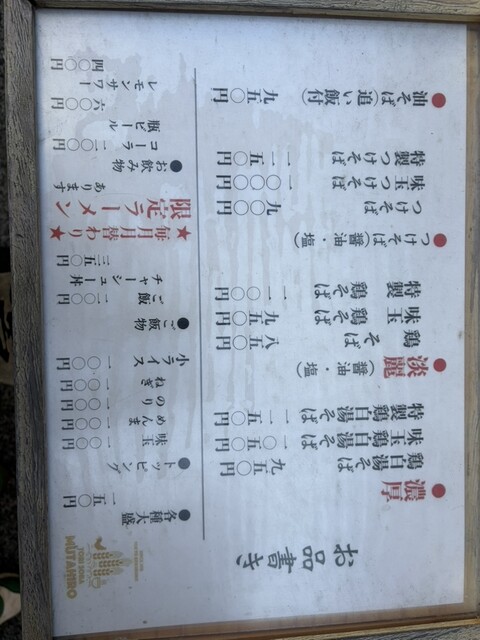 お品書き
●濃厚
鶏白湯そば 九五〇円
味玉鶏白湯そば 一〇五〇円
特製鶏白湯そば 一一五〇円
●淡麗(醤油・塩)
鶏そば 八五〇円
味玉鶏そば 九五〇円
特製鶏そば
●つけそば(醤油・塩)
つけそば 九〇〇円
味玉つけそば 一〇〇〇円
特製つけそば 一一五〇円
●油そば(追い飯付) 九五〇円
●各種大盛 一五〇円
●トッピング
味玉 一〇〇円
めんま 一〇〇円
のり 一〇〇円
ねぎ 一〇〇円
小ライス 一〇〇円
●ご飯物
ご飯
チャーシュー丼 三五〇円
★毎月月替わり★
限定ラーメン
あります
●お飲み物
コーラ 二〇〇円
瓶ビール 六〇〇円
レモンサワー 四〇〇円
MUTAHIRO